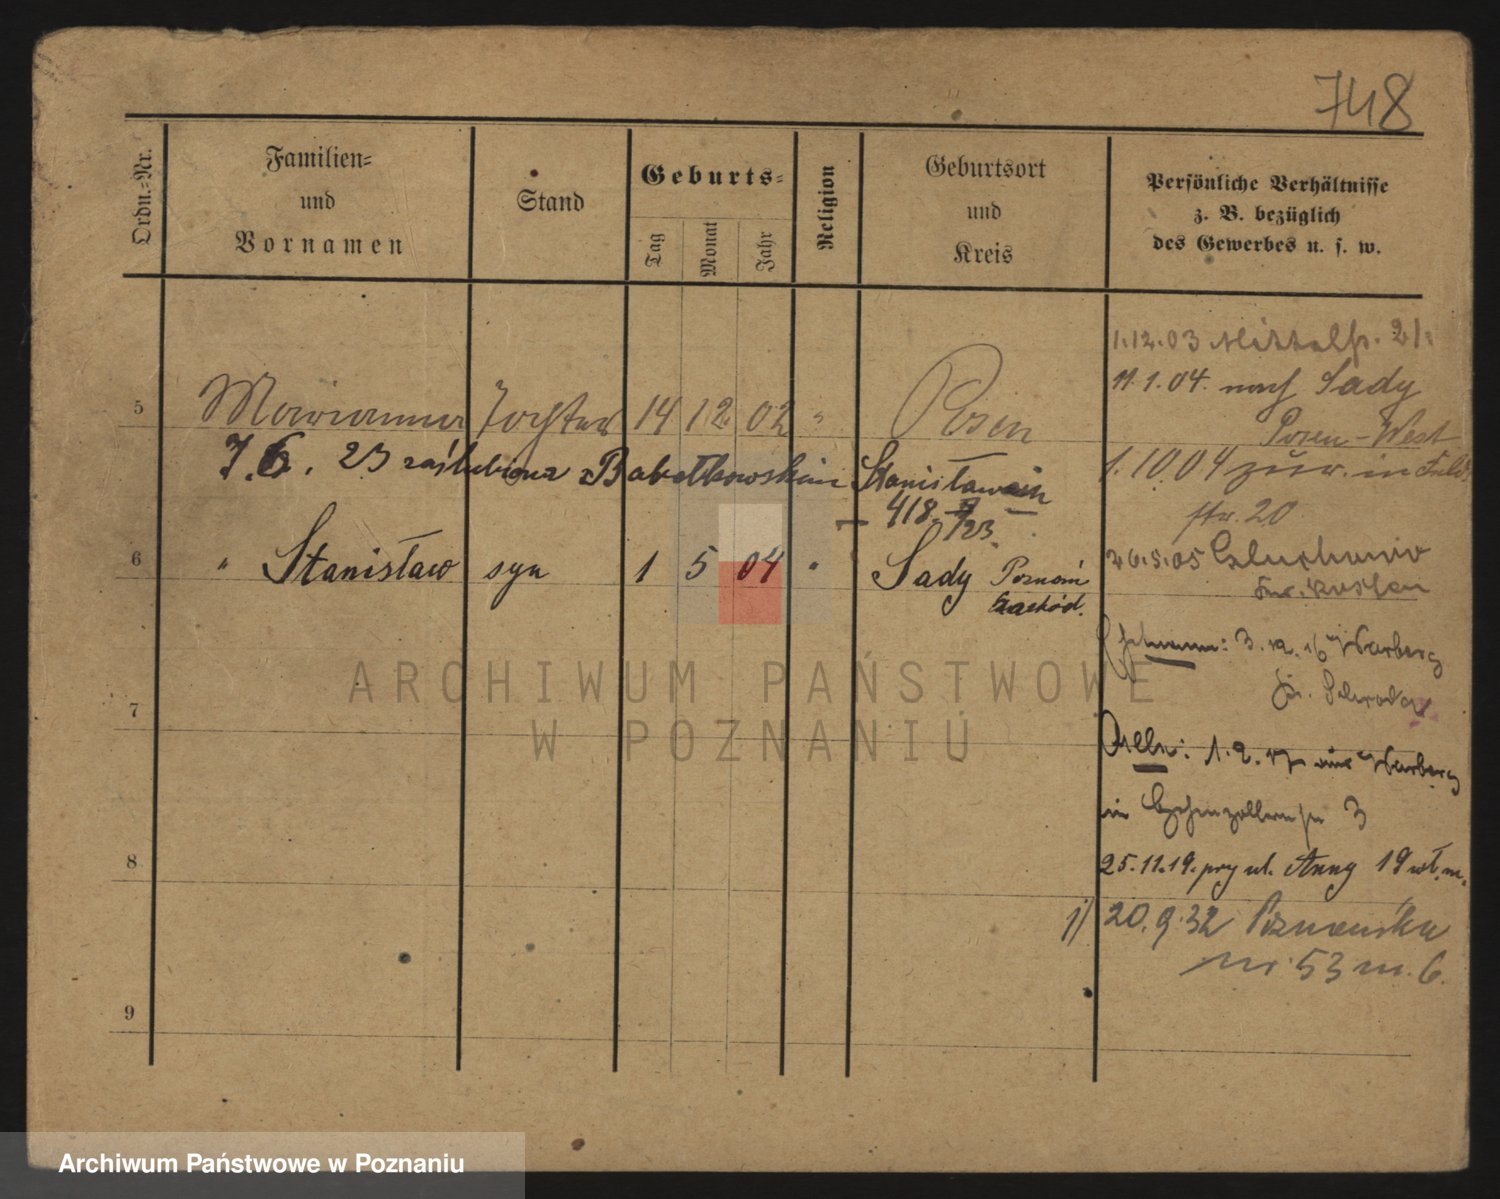 748
Ordn.-Nr.
Familien-
und
Vornamen
Stand
Geburts-
Tag
Monat
Jahr
Religion
Geburtsort
und
Kreis
Persönliche Verhältnisse
z. B. bezüglich
des Gewerbes u. s. w.
1.12.03 Mittelstr. 21.
11.1.04. nach Sady
Posen-West
5 Marianna Tochter 14 12 02 " Posen
7.6. 23 zaślubiona z Babetkowskim Stanisławem
418
/23.
1.10 04 zur. in
str. 20
6 " Stanisław syn 1 5 04 " Sady Poznań
zachód.
26.5.05
Kr. Kosten
Ehemann: 3.12.16 Warberg
Kr. Schroda
7
1.2.17 aus Warberg
in Hohenzollernstr 3
8
25.11.19. przy ul. Anny 19 wł. m.
1) 20.9.32 Poznańska
nr. 53 m. 6.
9
ARCHIWUM PAŃSTWOWE
W POZNANIU
Archiwum Państwowe w Poznaniu